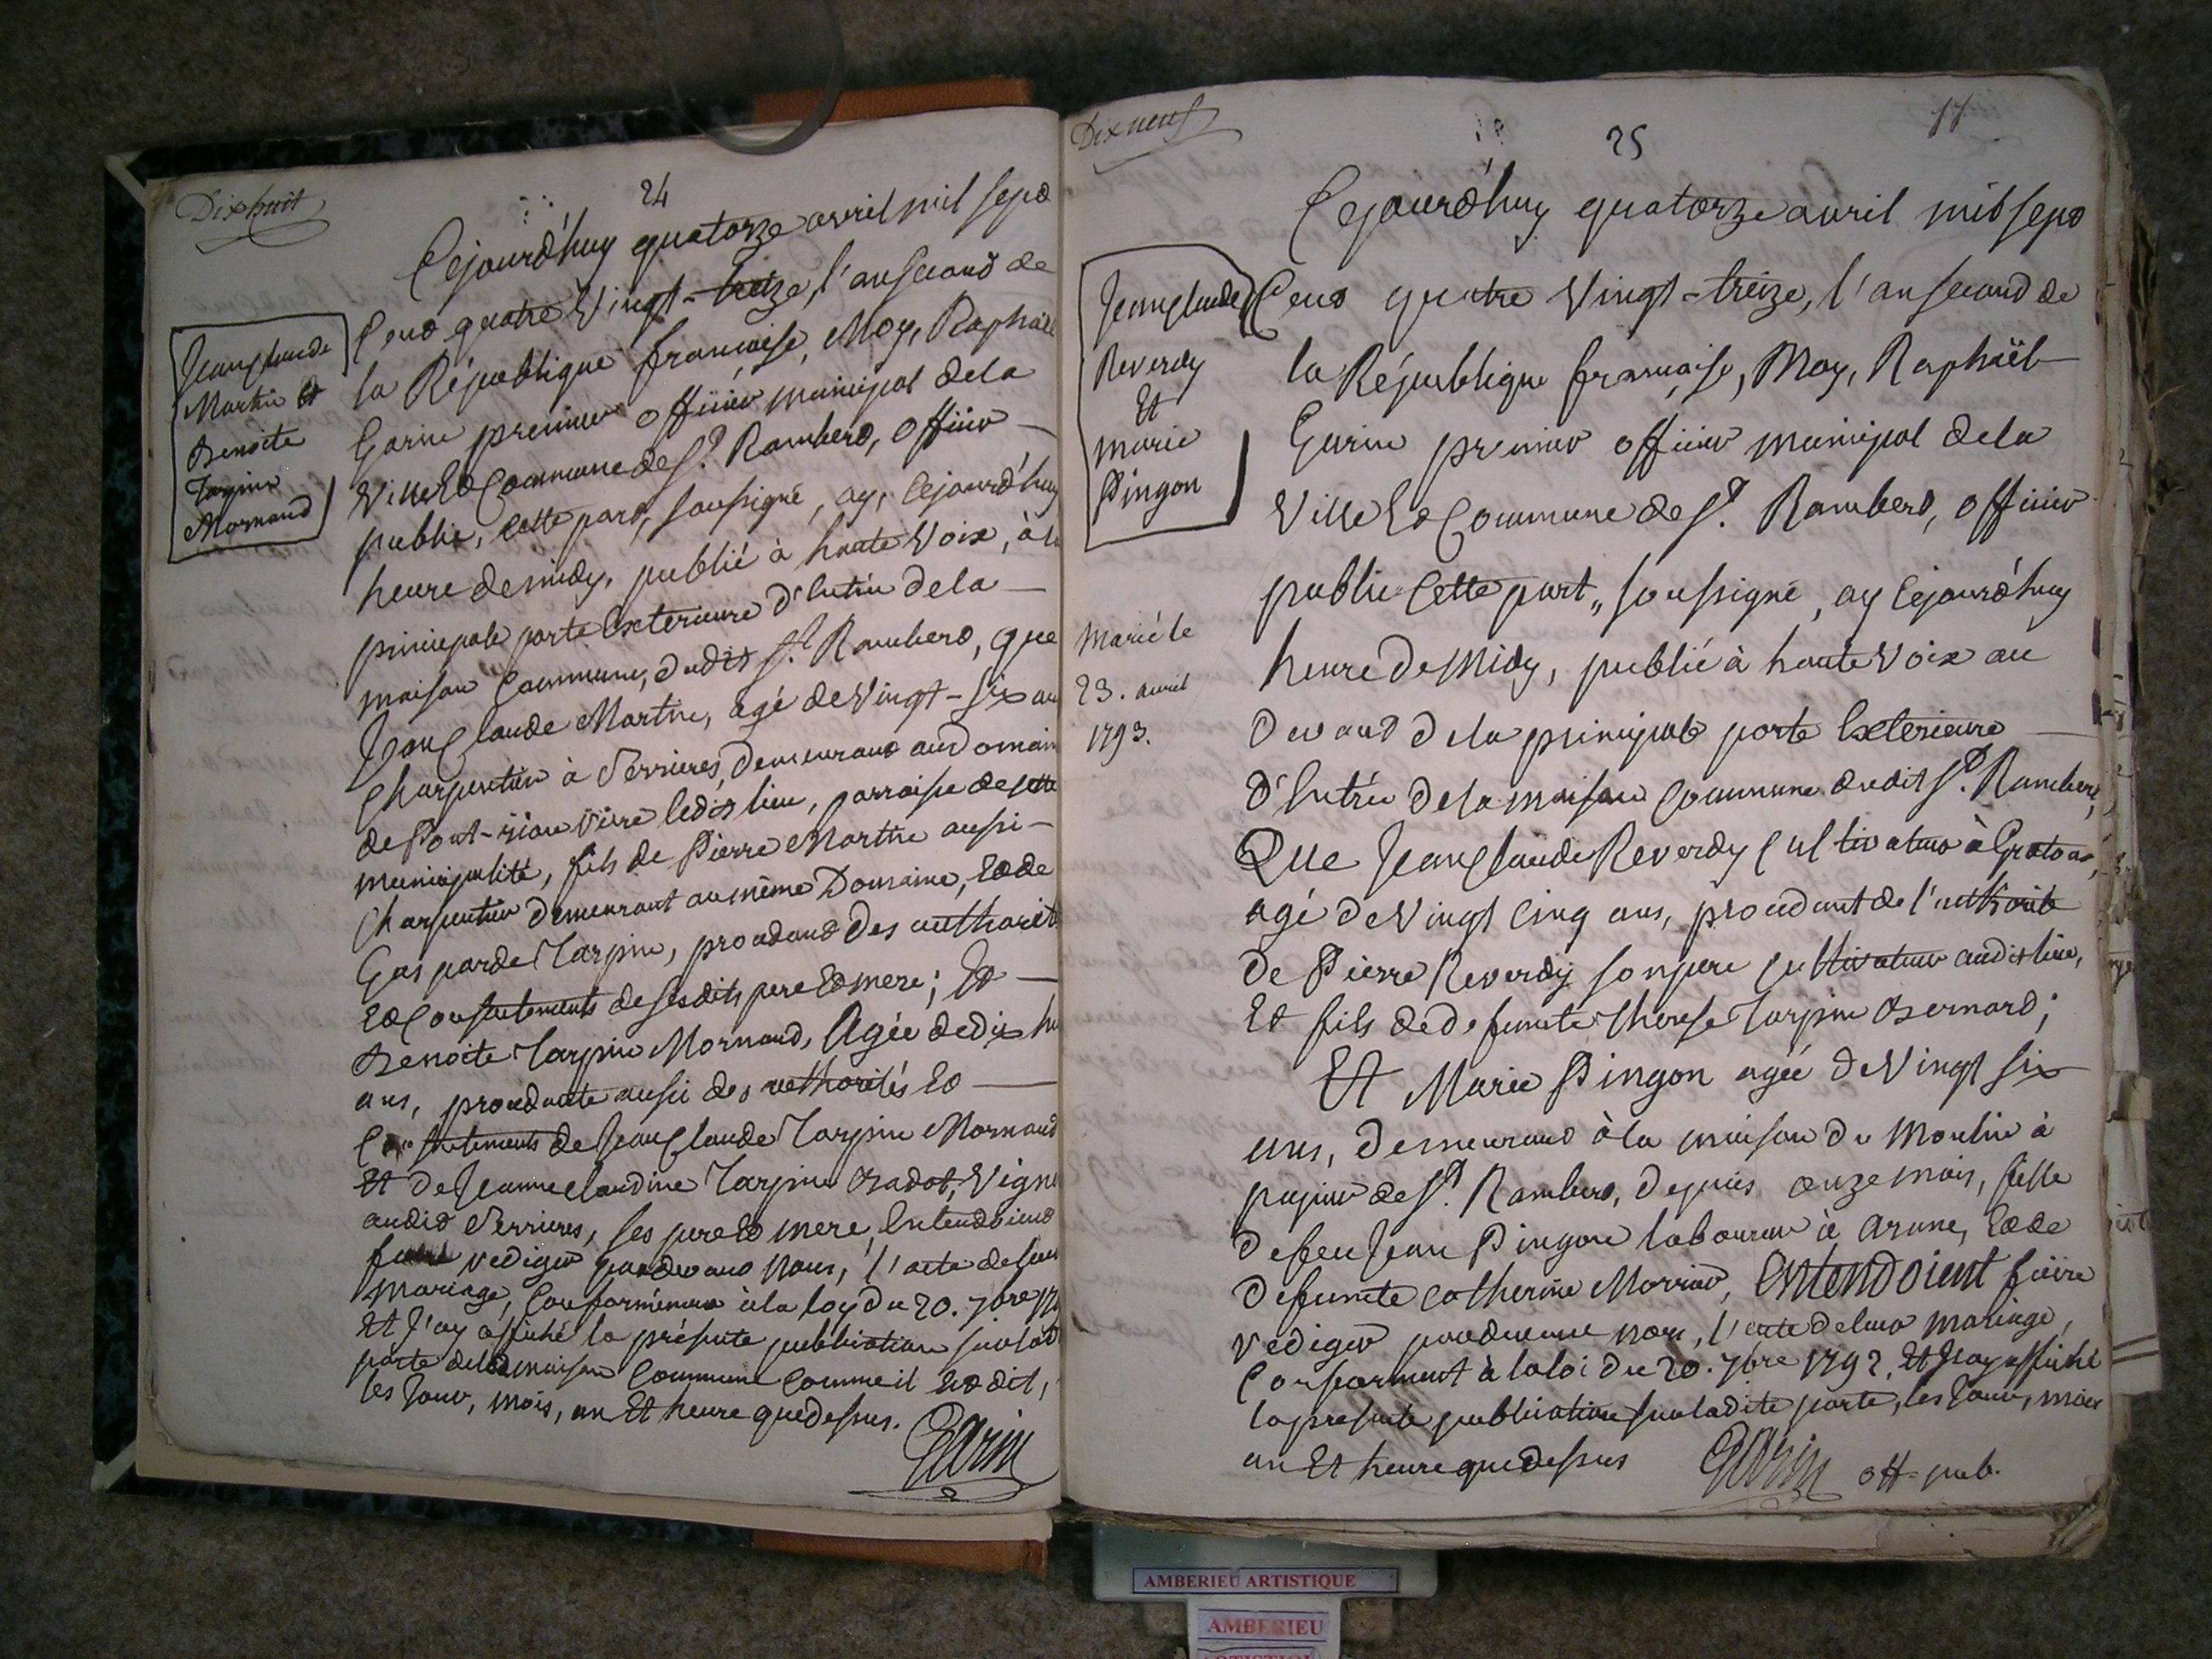 Dix huit
24
Cejourd'huy quatorze avril mil sept
Cent quatre Vingt-treize, l'an second de
la République françoise, Moy, Raphaël
Garin premier officier municipal de la
Ville Et Commune de St. Rambert, officier
public, Cette part, soussigné, ay, Cejourd'huy
heure de midy, publié à haute Voix, à la
principale porte Exterieure d'Entrée de la
maison Commune, dudit St. Rambert, que
Jean Claude Martin, agé de Vingt-Six ans
Charpentier à Serrieres, demeurant au Domaine
de Pont- ledit lieu, parroisse de cette
municipalité, fils de Pierre Martin aussi
Charpentier demeurant au même Domaine, Et de
Gasparde Tarpin, procedant des authorité
Et Consentements de sesdits pere Et mere; Et
Benoite Tarpin Mornand, Agée de dix hu
ans, procedante aussi des authorités Et
Consentements de Jean Claude Tarpin Mornand
Et de Jeanne claudine Tarpin Badot, Vigne
audit Serrieres, ses pere Et mere, Entendoient
faire rediger pardevant Nous, l'acte de leur
Mariage, Conformément à la loy du 20. 7bre 179
Et J'ay affiché la présente publication sur lad
porte de la maison Commune Comme il Est dit,
les Jour, mois, an Et heure que dessus.
Garin
Jean Claude
Martin Et
Benoite
Tarpin
Mornand
Dix neuf
25
Cejourd'huy quatorze avril mil sept
Cent quatre Vingt-treize, l'an second de
la République françaíse, Moy, Raphaël
Garin premier officier municipal de la
Ville Et Commune de St. Rambert, officier
public Cette part, soussigné, ay Cejourd'huy
heure de Midy, publié à haute Voix au
devant de la principale porte Exterieure
d'Entrée de la maison Commune dudit St. Rambert,
Que Jean Claude Reverdy Cultivateur à Gratoux,
agé de Vingt Cinq ans, procedant de l'authorité
de Pierre Reverdy son pere Cultivateur audit lieu,
Et fils de defunte Therese Tarpin Bernard;
Et Marie Pingon agée de Vingt six
ans, demeurant à la maison du Moulin à
papier de St. Rambert, depuis onze mois, fille
de feu Jean Pingon laboureur à Arane, Et de
defunte Catherine Morrier, Entendoient faire
rediger pardevant nous, l'acte de leur mariage,
Conforment à la loi du 20. 7bre 1792, Et J'ay affiché
la presente publication sur ladite porte, les Jour, mois
an Et heure que dessus
Garin off. pub.
Jean Claude
Reverdy
Et
marie
Pingon
Marié le
23. avril
1793.
AMBERIEU ARTISTIQUE
AMBERIEU
ARTISTIQUE